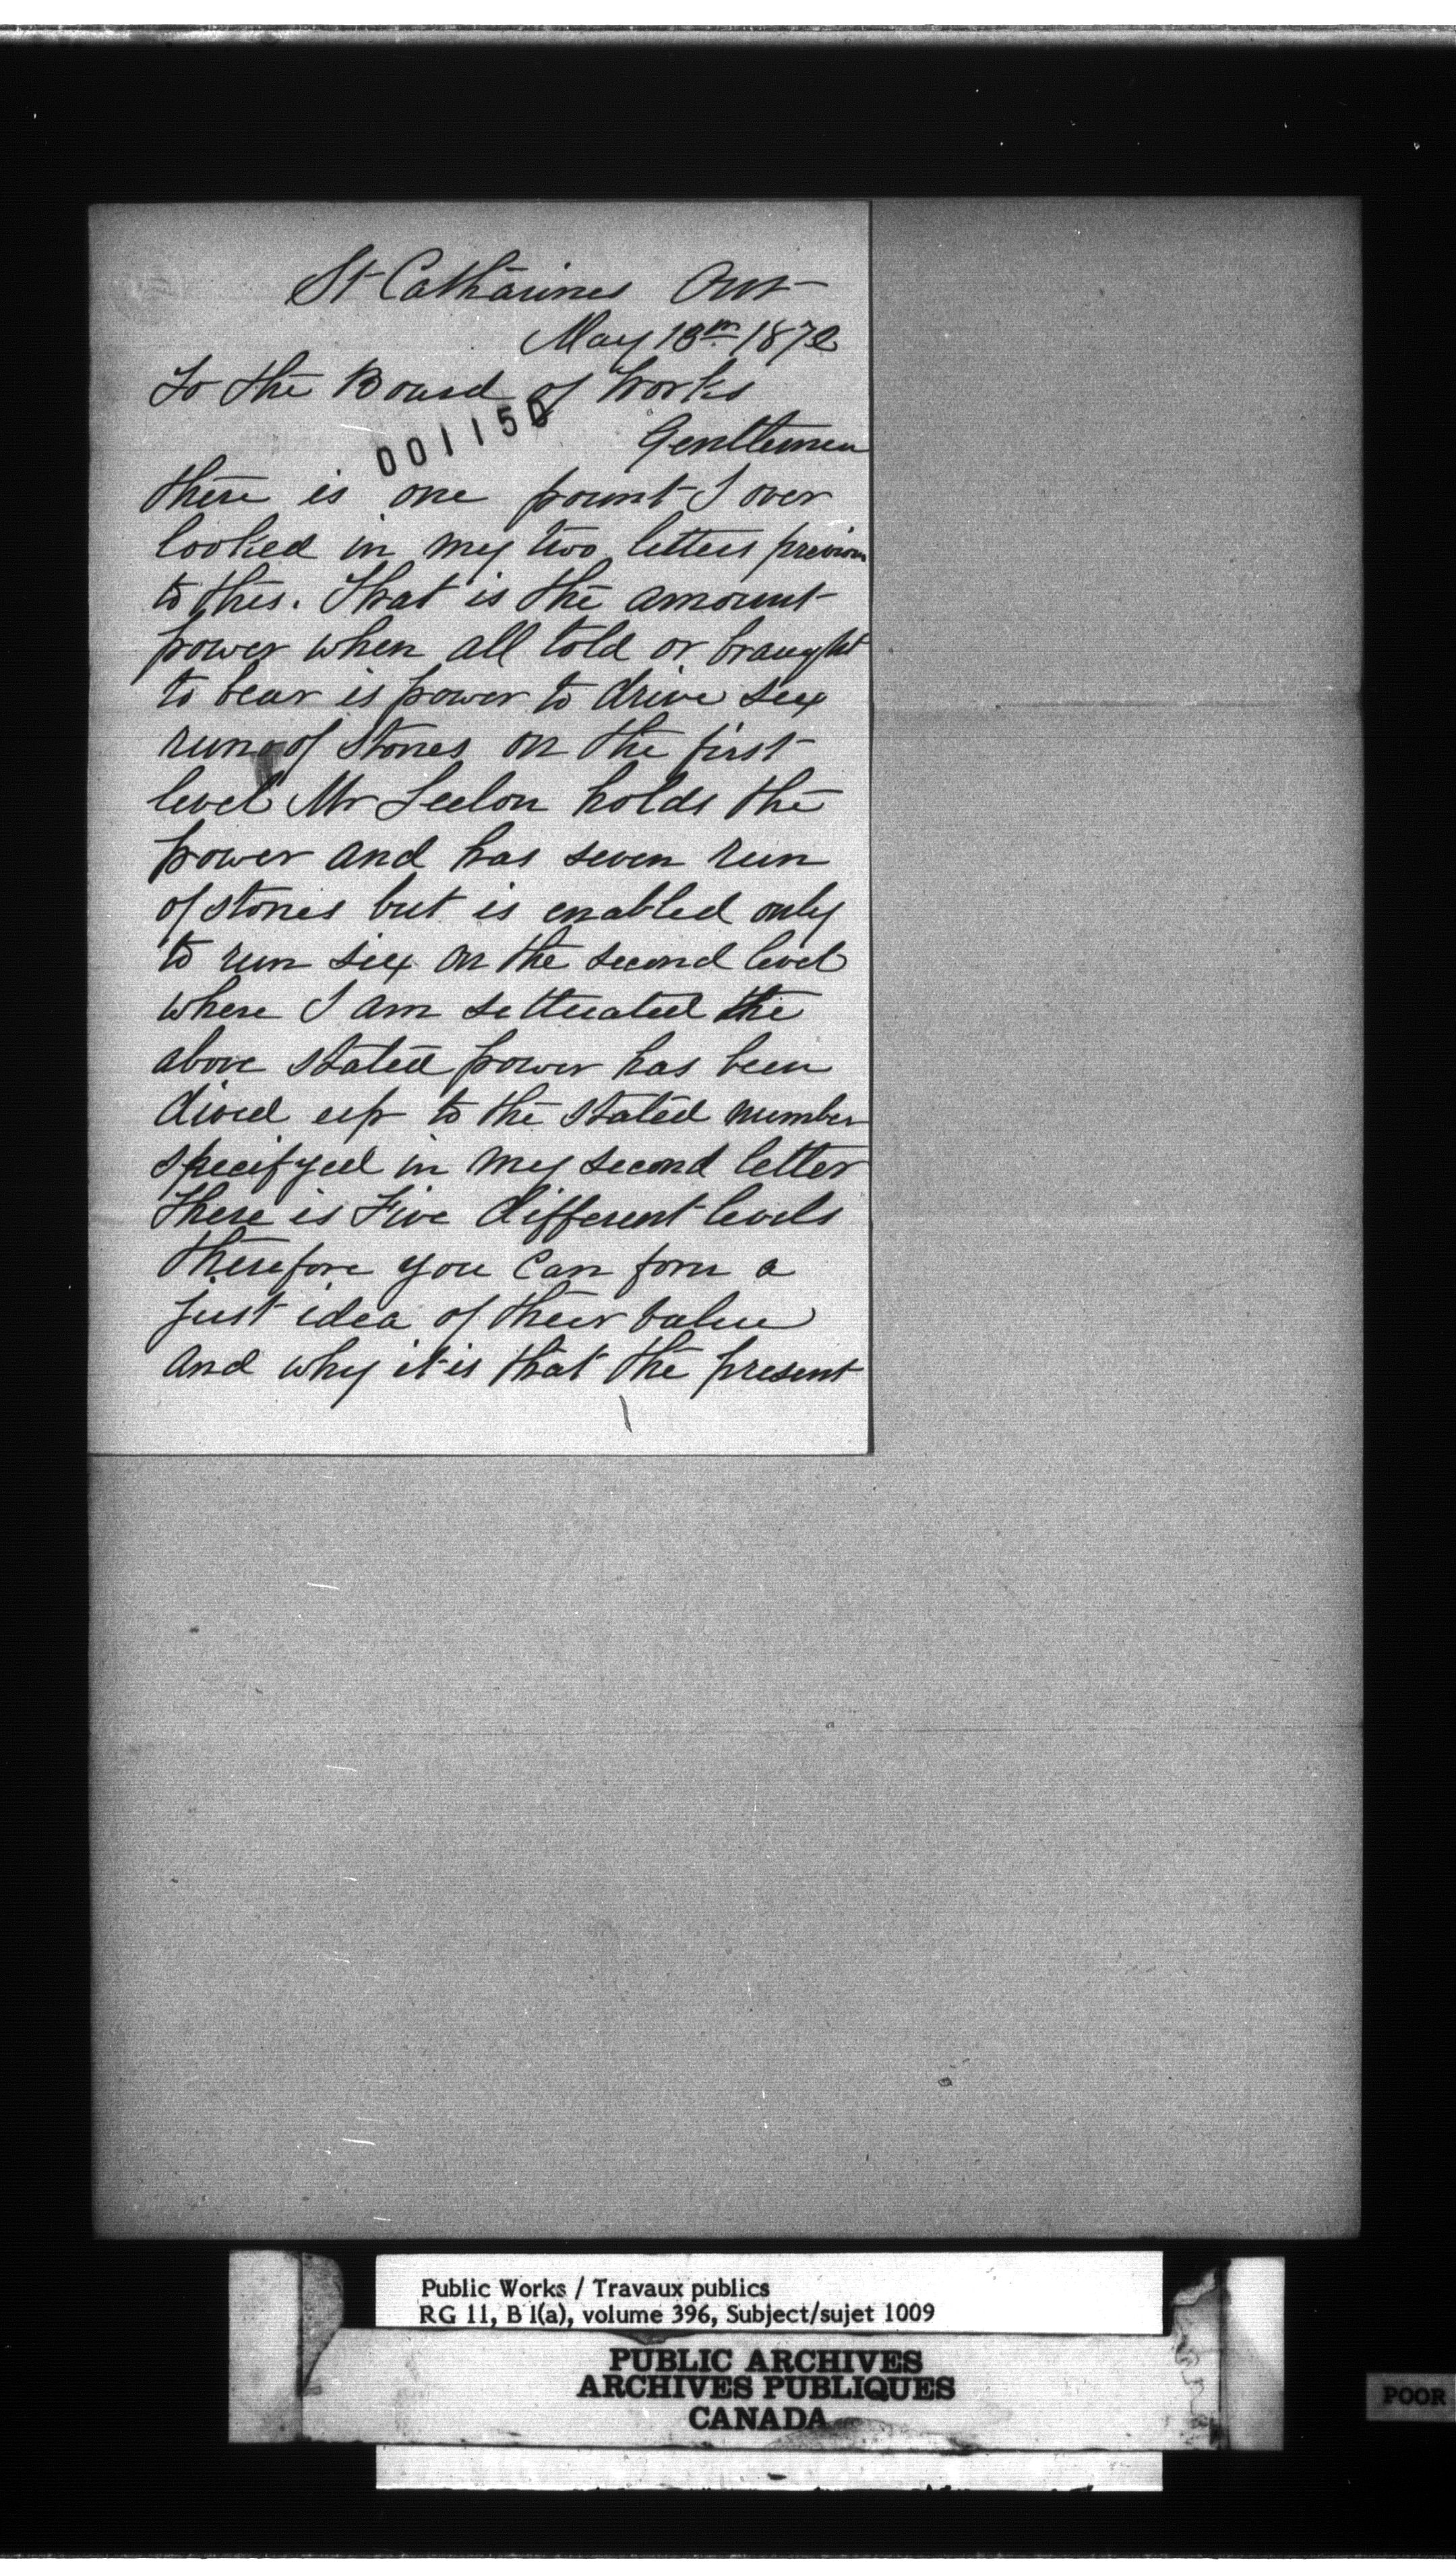 St Catharines Ont
May 13th 1872
To the Board of Works
001150
Gentlemen
there is one pount I over
looked in my two letters previous
to this. That is the amount
power when all told or braught
to bear is power to drive six
run of stones on the first
level Mr Seelon holds the
power and has seven run
of stones but is enabled only
to run six on the second level
where I am settuated the
above stated power has been
divied up to the stated number
specifyed in my second letter
There is Five different levels
therefore you can form a
just idea of their value
and why it is that the present
Public Works / Travaux publics
RG 11, B 1(a), volume 396, Subject/sujet 1009
PUBLIC ARCHIVES
ARCHIVES PUBLIQUES
CANADA
POOR